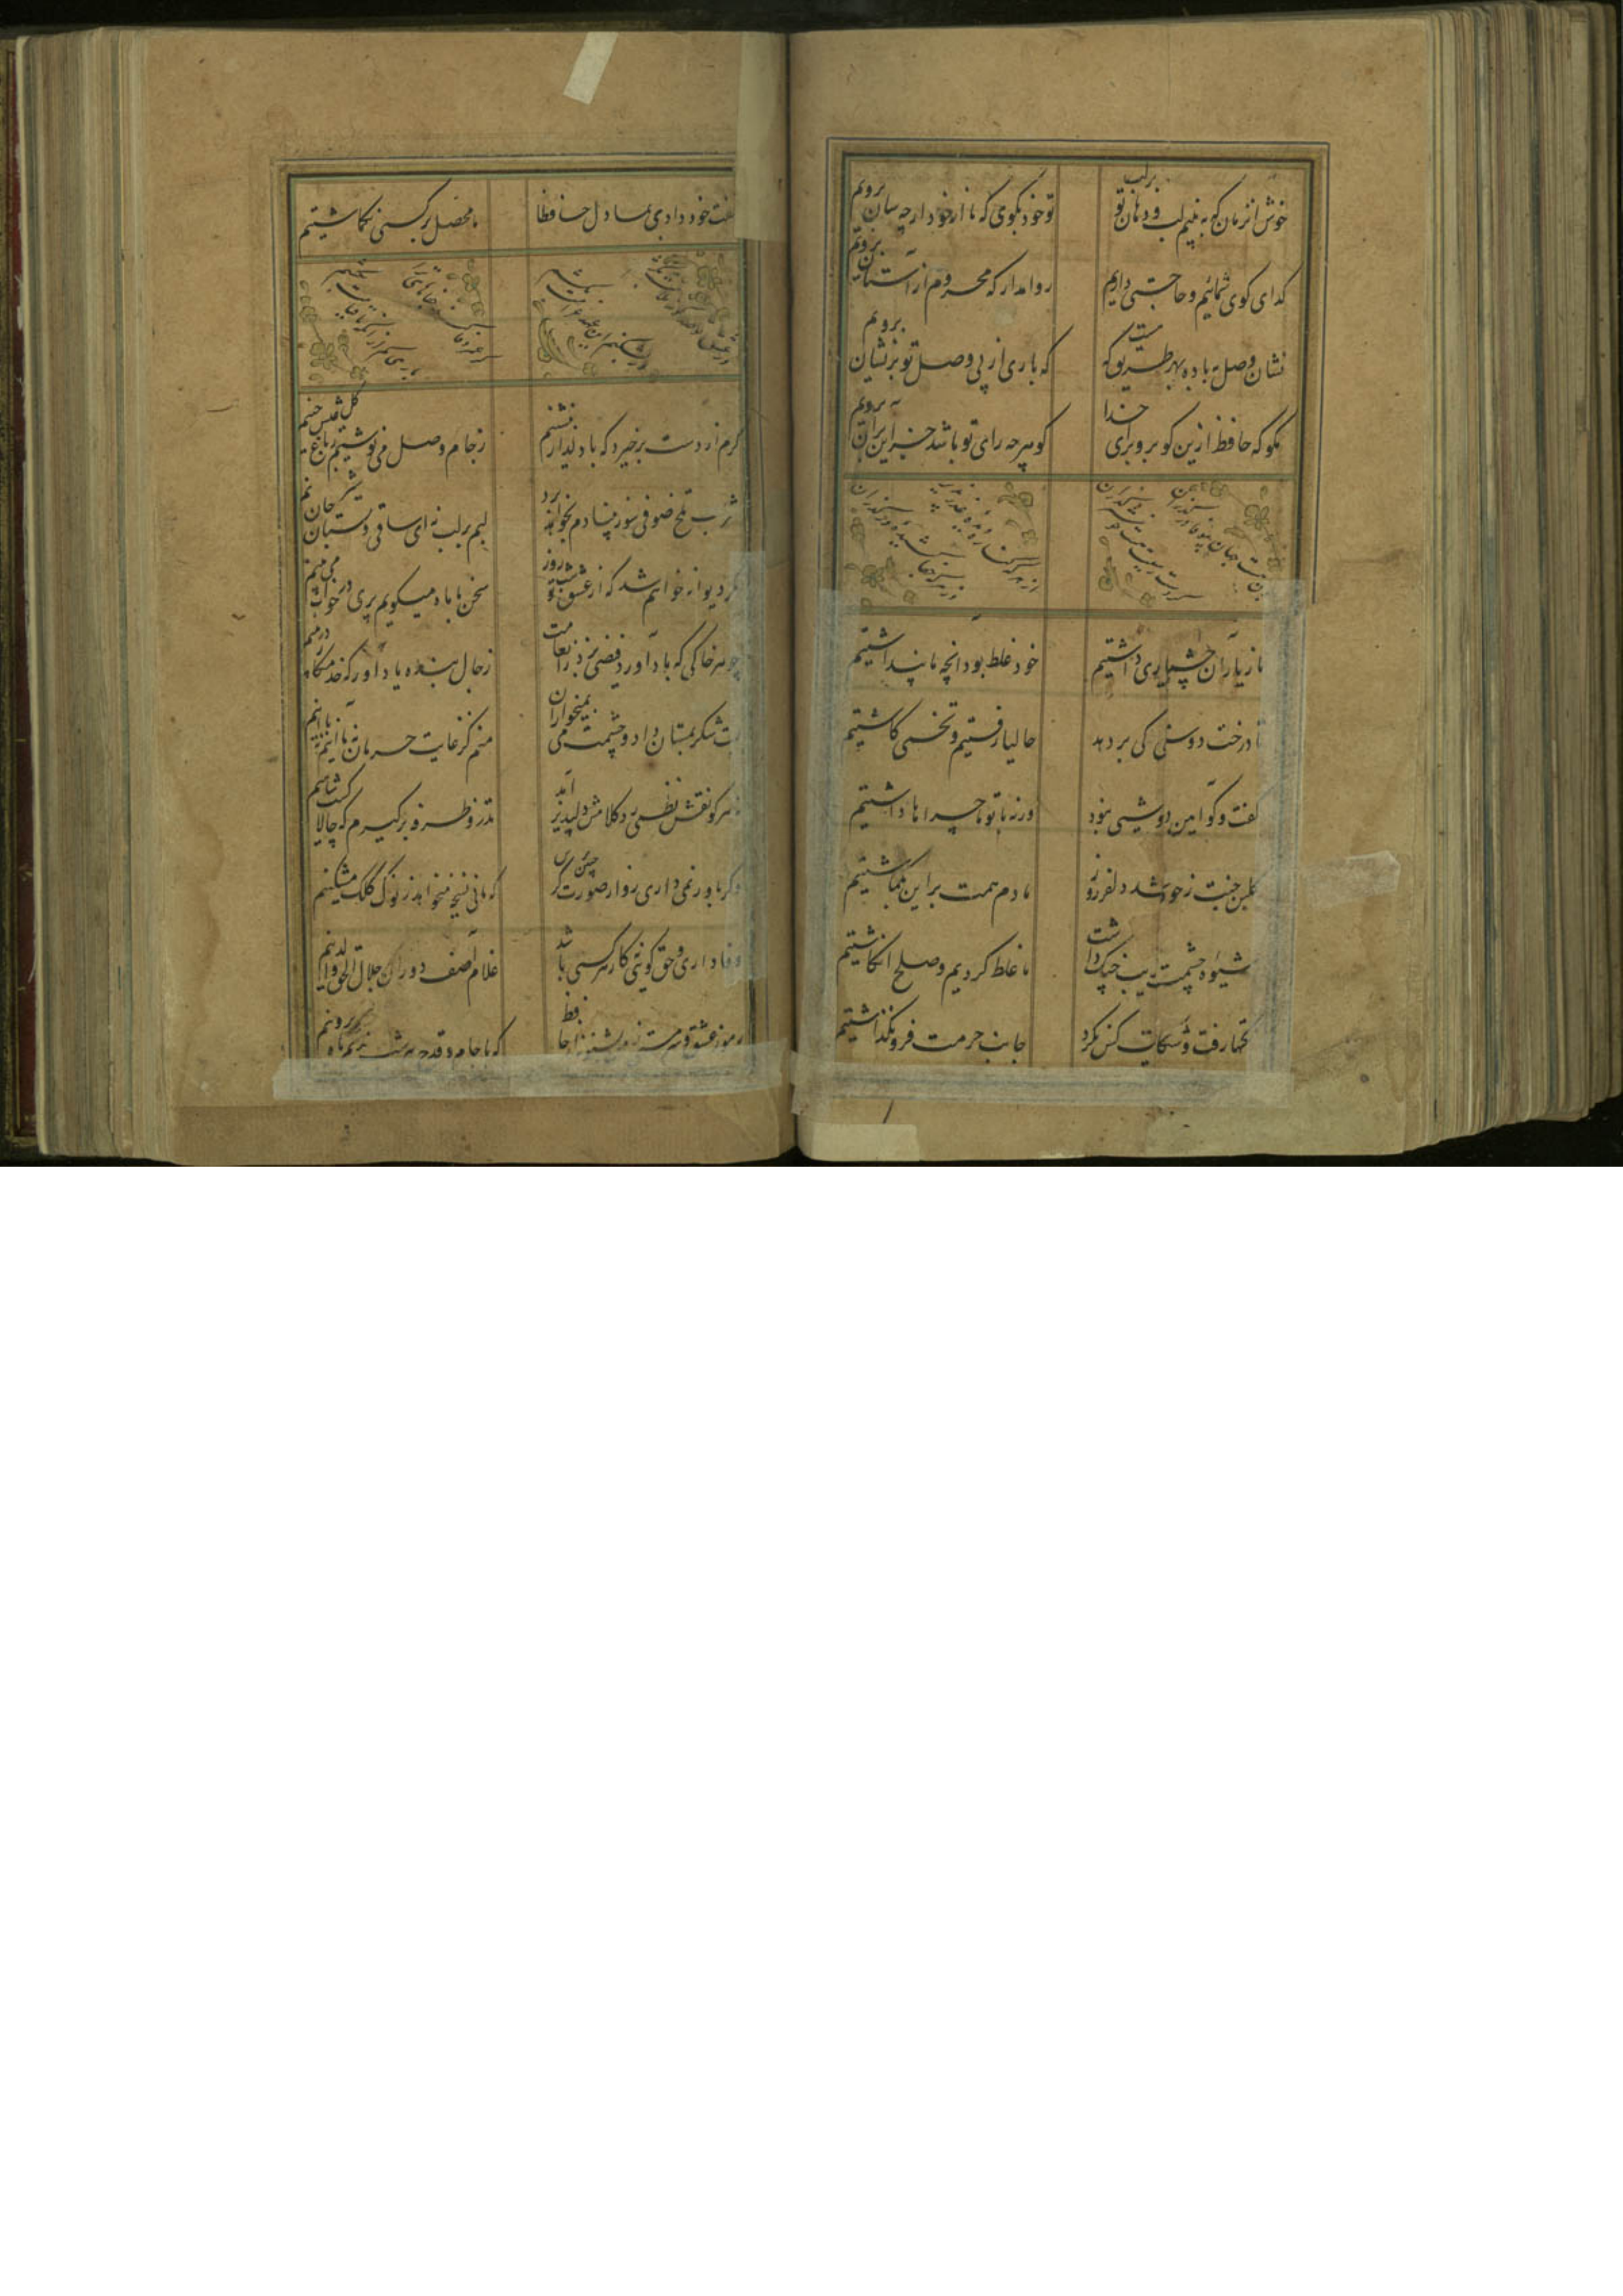 خوش آنزمان که ببینیم لب و دهان تو بر لب تو خود بگوی که ما از خود ار چه سان برویم
کدای کوی شمائیم و حاجتی داریم روا مدار که محروم از آستان برویم
نشان وصل بما ده بهر طریق که هست که باری از پی وصل تو بر نشان برویم
مکو که حافظ ازین کو برو برای خدا که هر چه رای تو باشد جز این بر آن برویم
ما ز یاران چشم یاری داشتیم خود غلط بود آنچه ما پنداشتیم
تا درخت دوستی کی بر دهد حالیا رفتیم و تخمی کاشتیم
گفت و کو آیین درویشی نبود ورنه با تو ماجراها داشتیم
گلبن حسنت نه خود شد دلفروز ما دم همت بر این بگماشتیم
شیوه چشمت فریب جنگ داشت ما غلط کردیم و صلح انکاشتیم
نکتها رفت و شکایت کس نکرد جانب حرمت فرو نگذاشتیم
گفت خود دادی بما دل حافظا ما محصل بر کسی نگماشتیم
گرم از دست برخیزد که با دلدار بنشینم ز جام وصل می نوشم ز باغ عیش گل چینم
شراب تلخ صوفی سوز بنیادم بخواهد برد لبم بر لب نه ای ساقی و بستان جان شیرینم
مگر دیوانه خواهم شد که از عشق تو شب تا روز سخن با ماه میگویم پری در خواب می بینم
چو هر خاکی که باد آورد فیضی برد ز انعامت ز حال بنده یاد آور که خدمتکار دیرینم
لبت شکر بمستان داد و چشمت می بمیخواران منم کز غایت حرمان نه با آنم نه با اینم
نه هر کو نقش نظمی زد کلامش دلپذیر آمد تذرو طرفه برگیرم که چالاکست شاهینم
وگر باور نمی داری رو از صورتگر چین پرس که مانی نسخه میخواهد ز نوک کلک مشکینم
وفاداری و حق گوئی نه کار هر کسی باشد غلام آصف دوران جلال الحق والدینم
رموز عشق و سرمستی ز من بشنو نه از حافظ که با جام و قدح هر شب ندیم ماه و پروینم